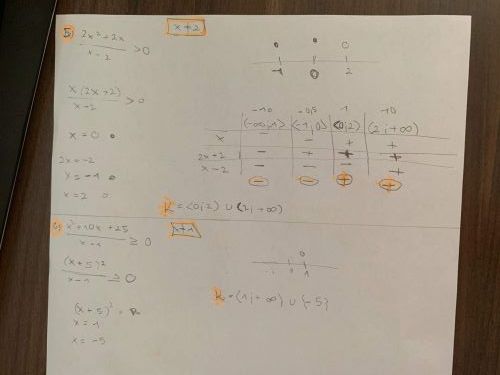 b) 2x²+2x / x-2 > 0
x ≠ 2
x(2x+2) / x-2 > 0
x = 0
2x = -2
x = -1
x = 2
0
-1 0 2
-10 -0,5 1 10
(-∞;-1) <-1;0) <0;2) (2;+∞)
x - - + +
2x+2 - + + +
x-2 - - - +
- - + +
K = <0;2) ∪ (2;+∞)
c) x²+10x+25 / x-1 ≥ 0
x≠1
(x+5)² / x-1 ≥ 0
(x+5)² =
x = 1
x = -5
0
0 1
K = (1;+∞) ∪ {-5}